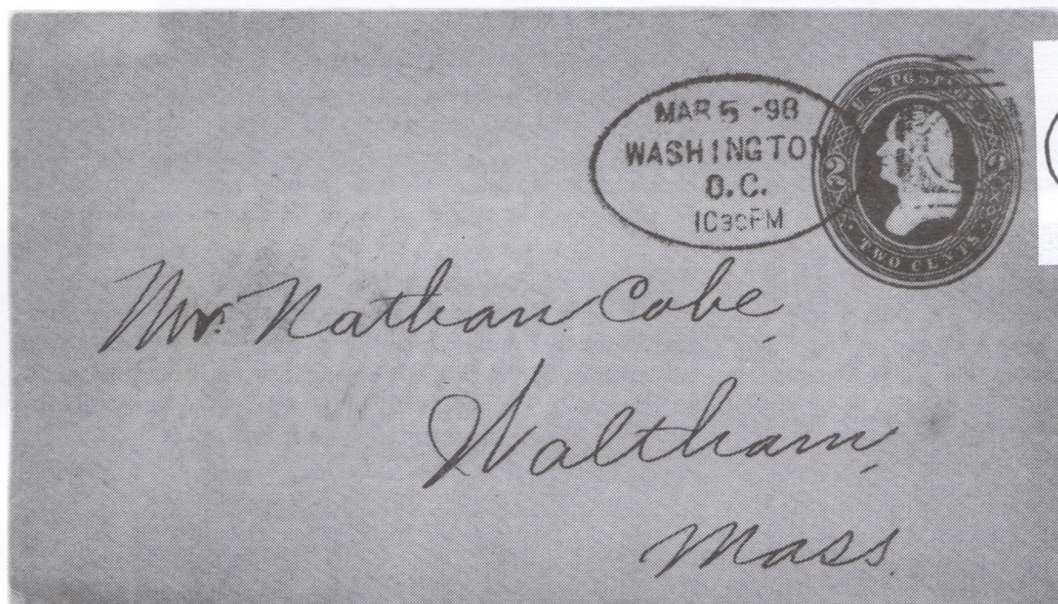 MAR 5 -98
WASHINGTON
D.C.
1030PM
U.S. POSTAGE
2 2
TWO CENTS
Mr. Nathan Cobe,
Waltham,
Mass.